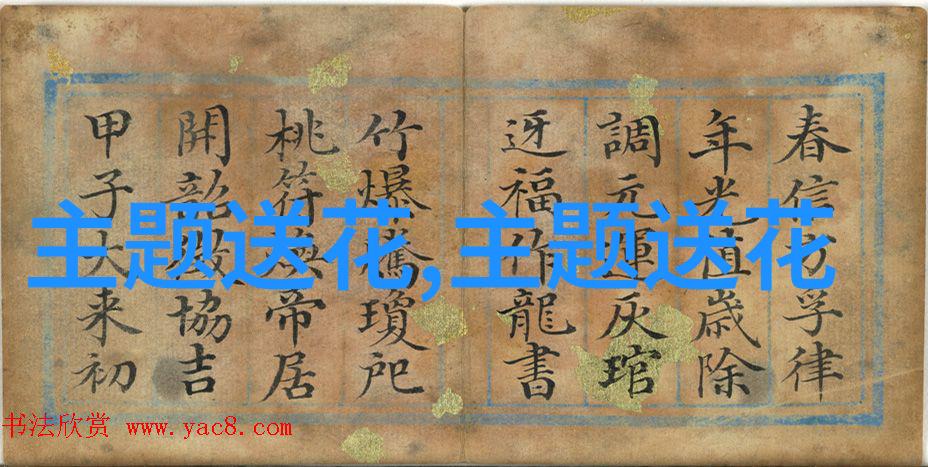 春信方孚律
年光值歲除
調元運灰琯
迓福作龍書
竹爆驚瓊戺
桃符煥帝居
開韶徵協吉
甲子大来初
主题送花,主题送花
书法欣赏 www.yac8.com